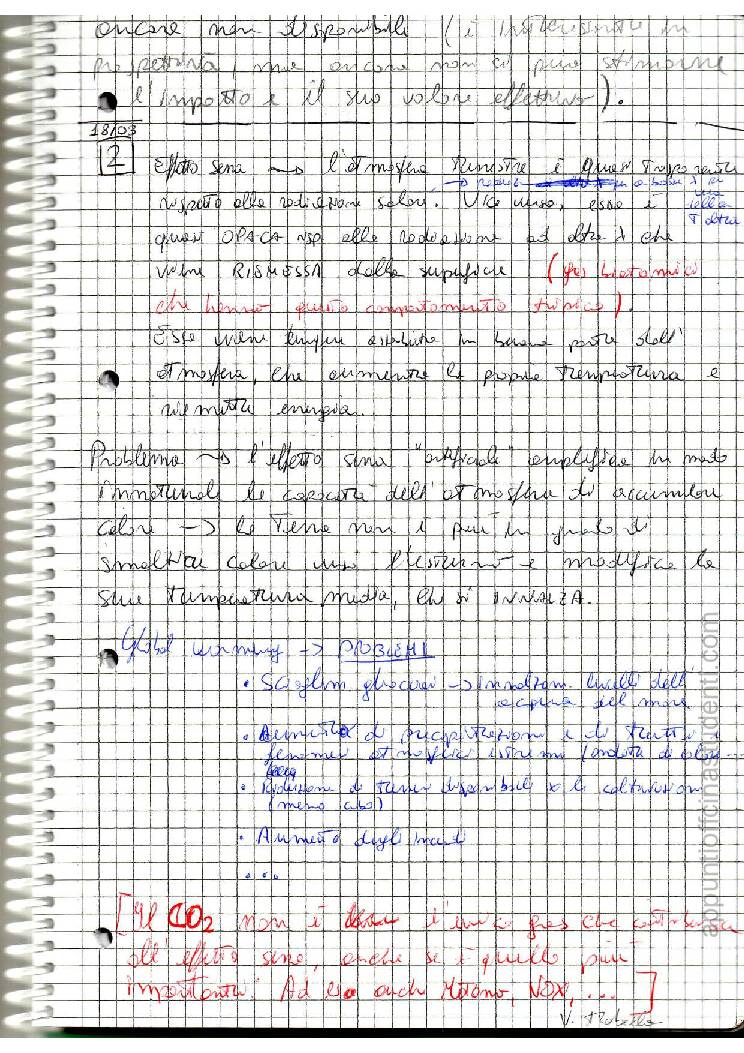 ancora non disponibili (è interessante in
prospettiva, ma ancora non si può stimarne
l'impatto e il suo valore effettivo).
18/03
2 Effetto serra → l'atmosfera terrestre è quasi trasparente
rispetto alla radiazione solare. Viceversa, essa è
quasi OPACA risp alla radiazione ad altra λ che
viene RIEMESSA dalla superficie (gas biatomici
che hanno questo comportamento termico).
Essa viene dunque assorbita in buona parte dall'
atmosfera, che aumenta la propria temperatura e
riemette energia.
Problema → l'effetto serra "artificiale" amplifica in modo
innaturale la capacità dell'atmosfera di accumulare
calore → la Terra non è più in grado di
smaltire calore verso l'esterno e modifica la
sua temperatura media, che si INNALZA.
Global warming → PROBLEMI
• Scioglim. ghiacciai → innalzam. livelli dell'
acqua del mare
• Aumento di precipitazioni e di tutti i
fenomeni atmosferici estremi (ondate di
• Riduzione di terreni disponibili x le coltivazioni
(meno cibo)
• Aumento degli incendi
• ...
[Il CO2 non è l'unico gas che contribuisce
all'effetto serra, anche se è quello più
importante. Ad es anche Metano, NOX, ...]
appuntiofficinastudenti.com